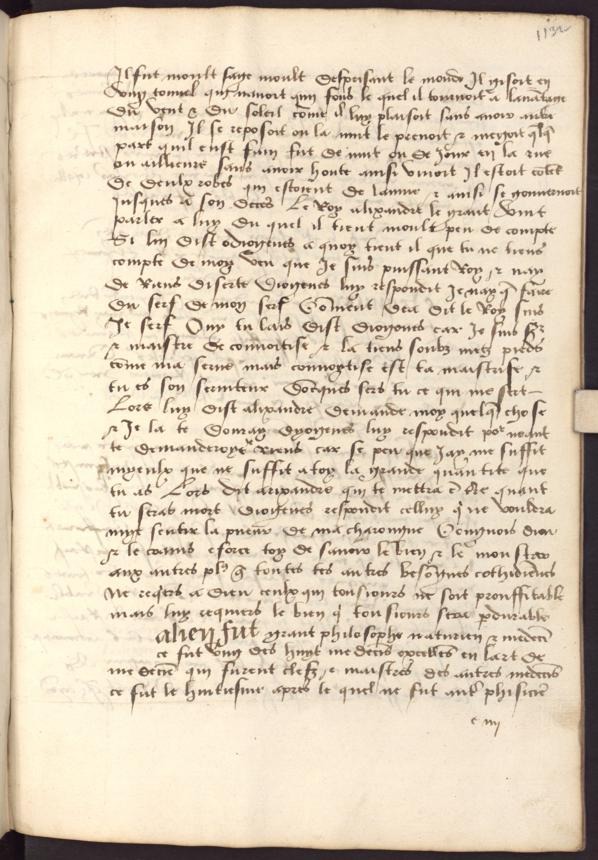 1132
Il fut moult saige moult despisant le monde Il gisoit en
vung tonnel qui navoit qun fons le quel il tournoit a lavantaige
du vent & du soleil come il luy plaisoit sans avoir autre
maison Il se reposoit ou la nuit le prenoit & mengoit
part quil eust fain fut de nuit ou de jour en la rue
ou ailleurs sans avoir honte ainsi vivoit Il estoit
de deulx robes qui estoient de lainne & ainsi se gouvernoit
jusques a son deces Le Roy alixandre le grant vint
parler a luy du quel il tient moult peu de compte
Si luy dist o diogenes a quoy tient il que tu ne tiens
compte de moy veu que Je suis puissant Roy & nay
de Riens diserte Diogenes luy respondit Je nay q faire
du serf de mon serf Coment dea dit le Roy suis
Je serf Ouy tu lais dist dioyones car Je suis
& maistre de convoitise & la tiens soubz mes piedz
come ma serve mais convoytise est ta maistrise &
tu es son serviteur Docques sers tu ce qui me sert
Lors luy dist alixandre demande moy quelq chose
& Je la te donray dyogenes luy respondit por neant
te demanderoye Riens car se peu que Jay me suffit
myeulx que ne suffit a toy la grande quantite que
tu as Lors dit alixandre qui te mettra e tre quant
tu seras mort Diogenes respondit celluy q ne vouldra
mye sentir la pueur de ma charongne Congnois dieu
& le crains efforce toy de savoir le bien & le monstrer
aux autres pl q toutes tes autres besongnes cothidienes
Ne reqers a dieu ceulx qui tousiours ne soit prouffitable
mais luy requiers le bien q tousiours sera pdurable
alien fut grant philosophe naturien & medeci
ce fut lung des huit medecis excelles en lart de
medecie qui furent clefz & maistres des autres medecis
ce fut le huitiesme apres le quel ne fut autre phisicie
e iiij